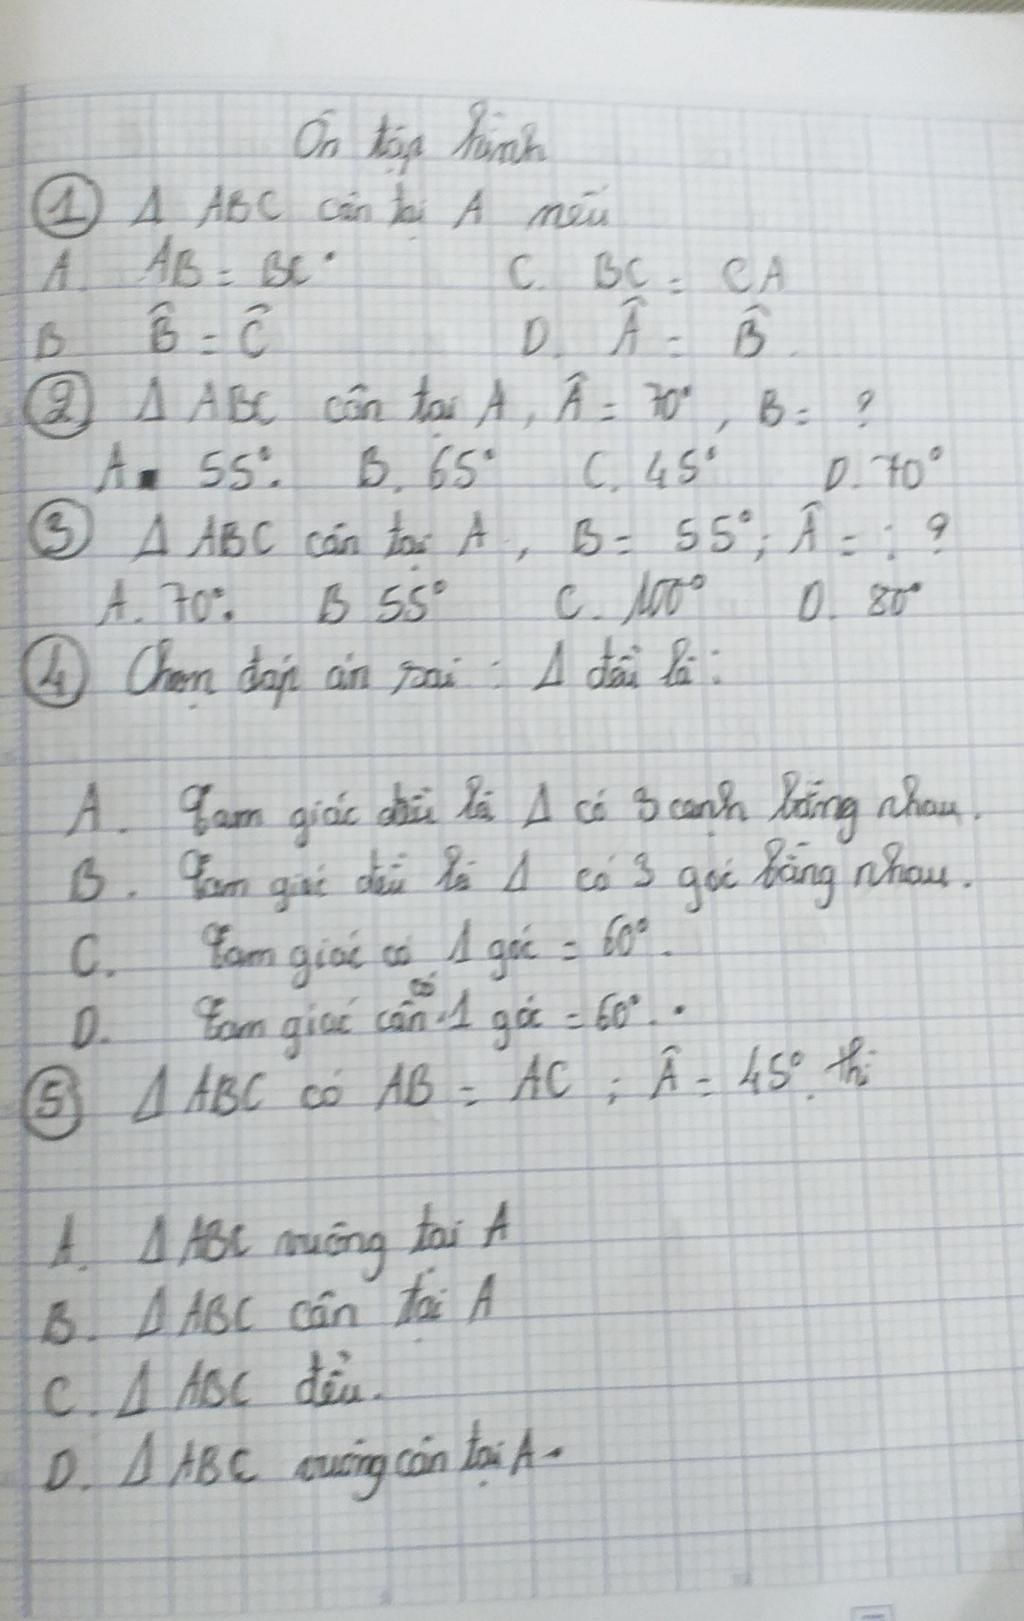 Ôn tập hình
① Δ ABC cân tại A nếu
A. AB = BC C. BC = CA
B B̂ = Ĉ D. Â = B̂.
② Δ ABC cân tại A, Â = 70°, B = ?
A. 55°. B. 65° C. 45° D. 70°
③ Δ ABC cân tại A, B = 55°; Â = : ?
A. 70°. B 55° C. 100° D. 80°
④ Chọn đáp án sai : Δ đều là :
A. Tam giác đều là Δ có 3 cạnh bằng nhau.
B. Tam giác đều là Δ có 3 góc bằng nhau.
C. Tam giác có 1 góc = 60°.
D. Tam giác cân có 1 góc = 60°.
⑤ Δ ABC có AB = AC ; Â = 45°. thì
A. Δ ABC vuông tại A
B. Δ ABC cân tại A
C. Δ ABC đều.
D. Δ ABC vuông cân tại A.